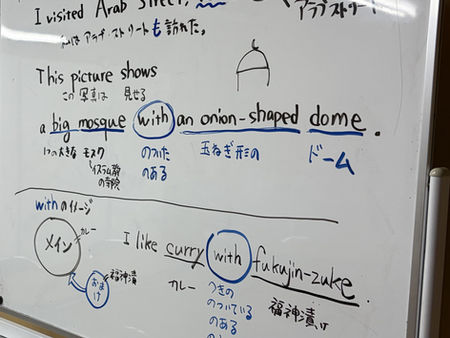 I visited Arab Street,
アラブストリート
私は アラブ・ストリートも 訪れた。
This picture shows
この 写真は 見せる
a big mosque with an onion-shaped dome.
1つの大きな モスク のついた 玉ねぎ形の ドーム
イスラム教 のある
の寺院
withのイメージ
メイン カレー I like curry with fukujin-zuke.
おまけ 福神漬 カレー つきの 福神漬け
のついている
のある